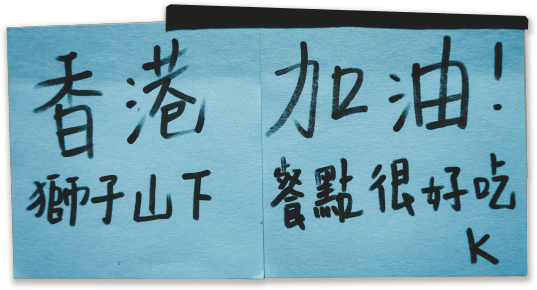 香港加油!
獅子山下
餐點很好吃
K